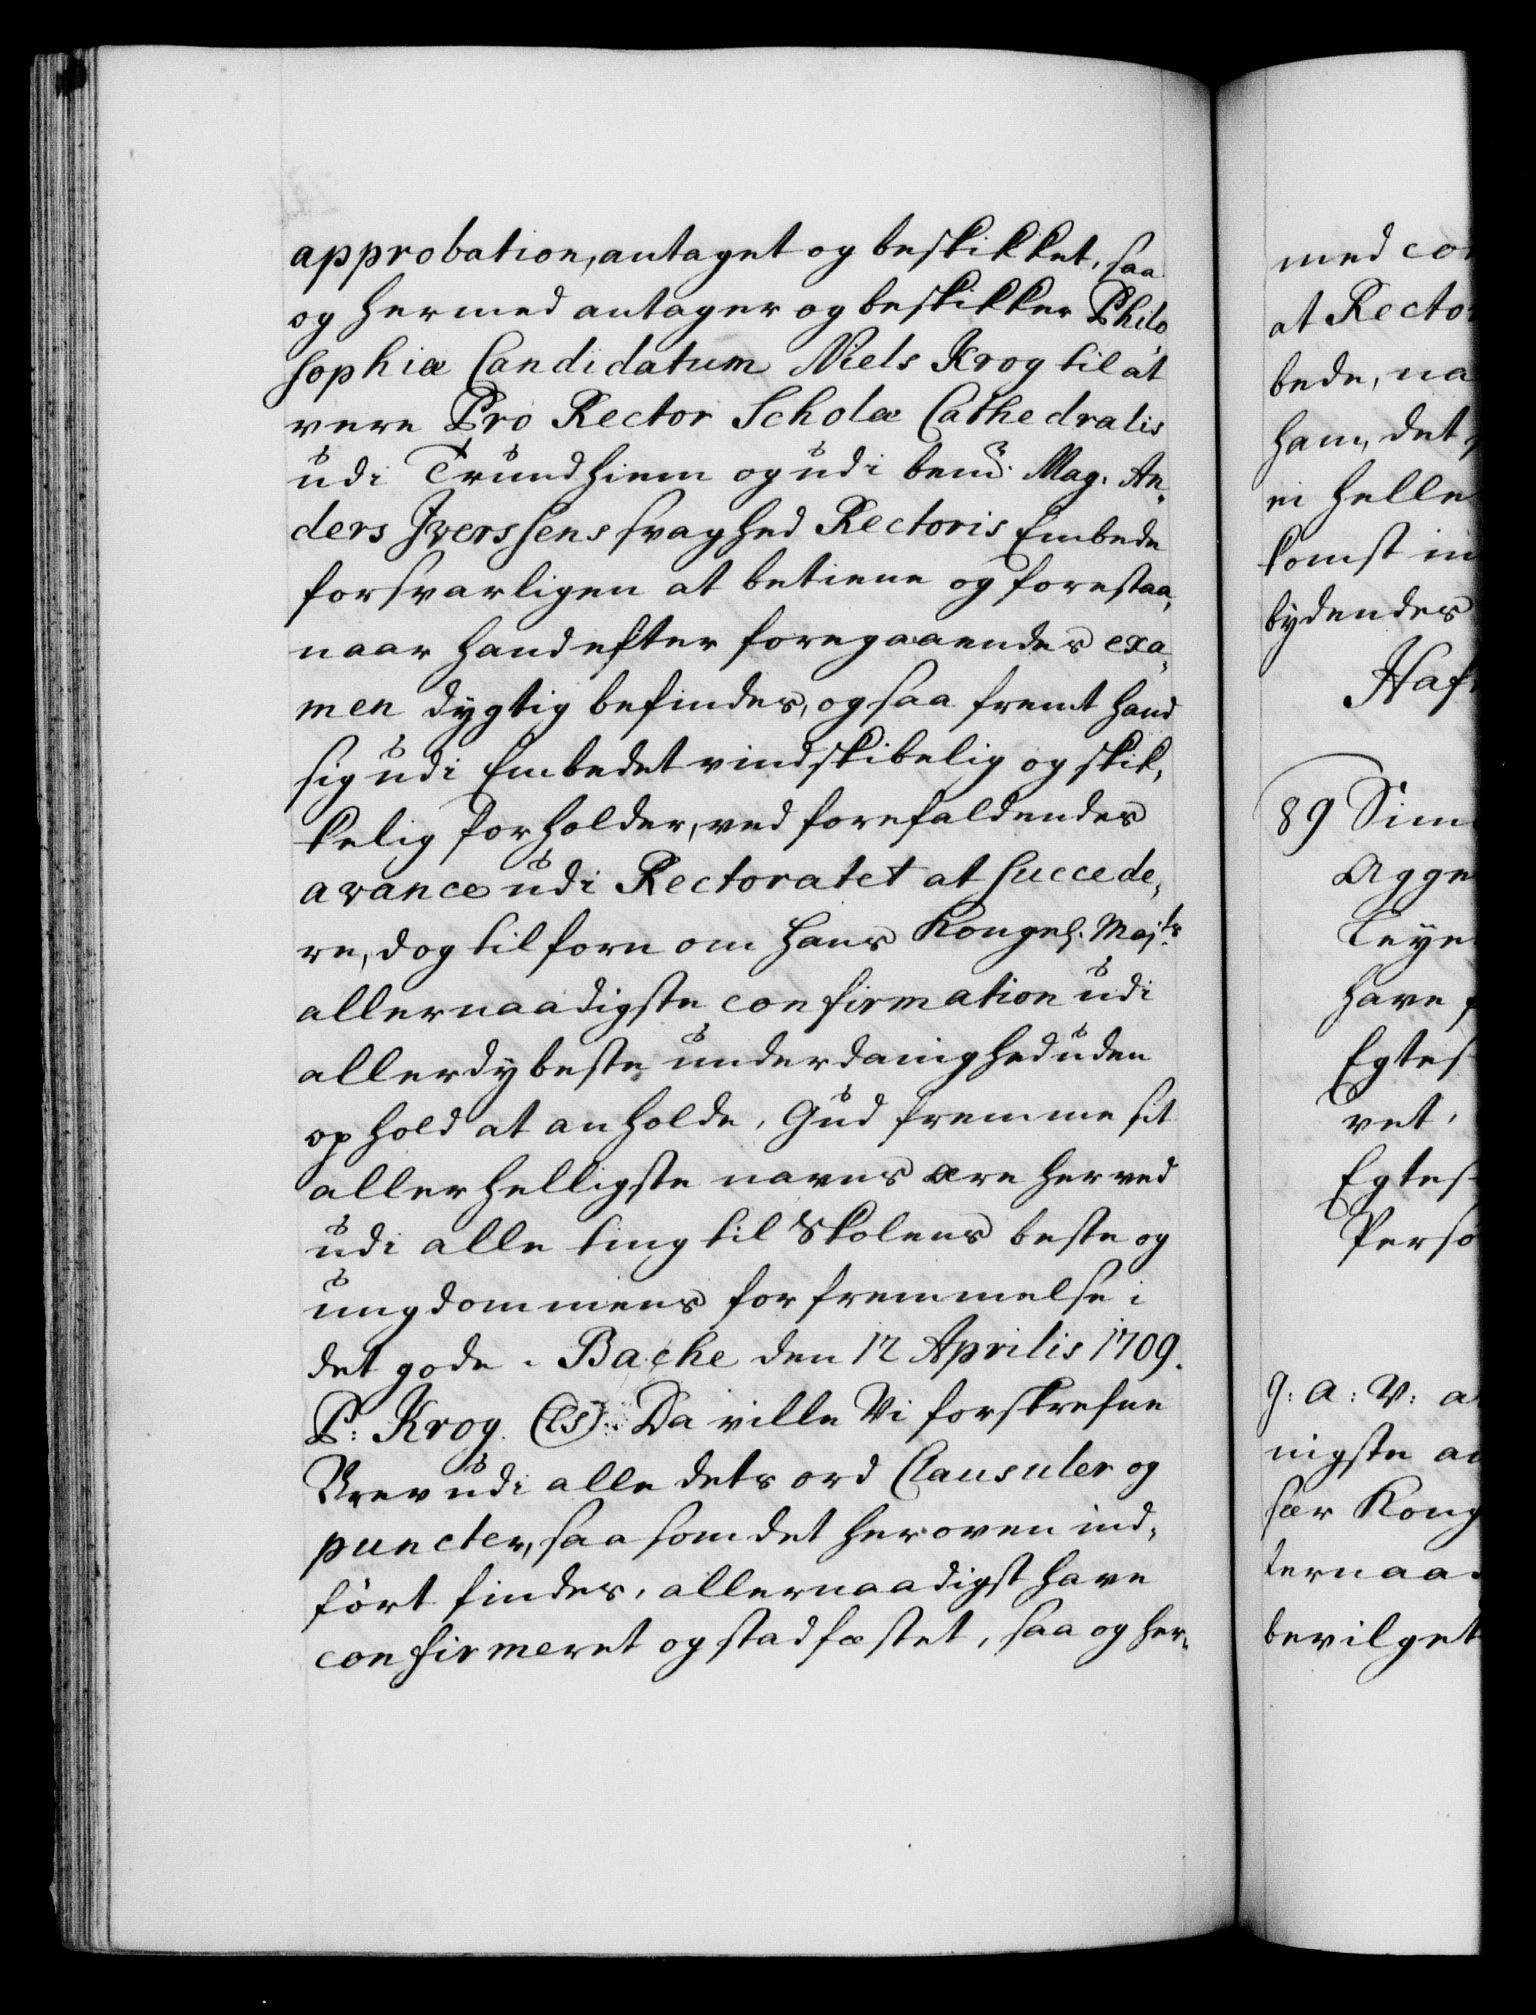 approbation, antaget og beskikket, saa
og hermed antager og beskikker Philo„
sophiæ Candidatum Niels Krog til at
være Pro Rector Scholæ Cathedralis
udi Trundhiem og udi bemte Mag. An„
ders Iverssens svaghed Rectoris Embede
forsvarligen at betiene og forestaa,
naar hand efter foregaaendes exa„
men dygtig befindes, og saa fremt hand
sig udi Embedet vindskibelig og skik„
kelig forholder, ved forefaldendes
avance udi Rectoratet at succede„
re, dog tilforn om hans Kongel. Majts
allernaadigste confirmation udi
allerdybeste underdanighed uden
ophold at anholde. Gud fremme sit
allerhelligste navns ære herved
udi alle ting til Skolens beste og
ungdommens forfremmelse i
det gode. Bache den 12 Aprilis 1709.
P: Krog. (LS). Da ville Vi forskrefne
Brev udi alle dets ord Clausuler og
puncter, saa som det heroven ind„
ført findes, allernaadigst have
confirmeret og stadfæstet, saa og her„
med con
at Recto
bede, na
ham, det
ei helle
komst in
bydendes
Haf
89 Sim
Agge
Leye
have
Egtes
vet,
Egtes
Perso
J: A: V: a
nigste an
sær Kong
lernaa
bevilget